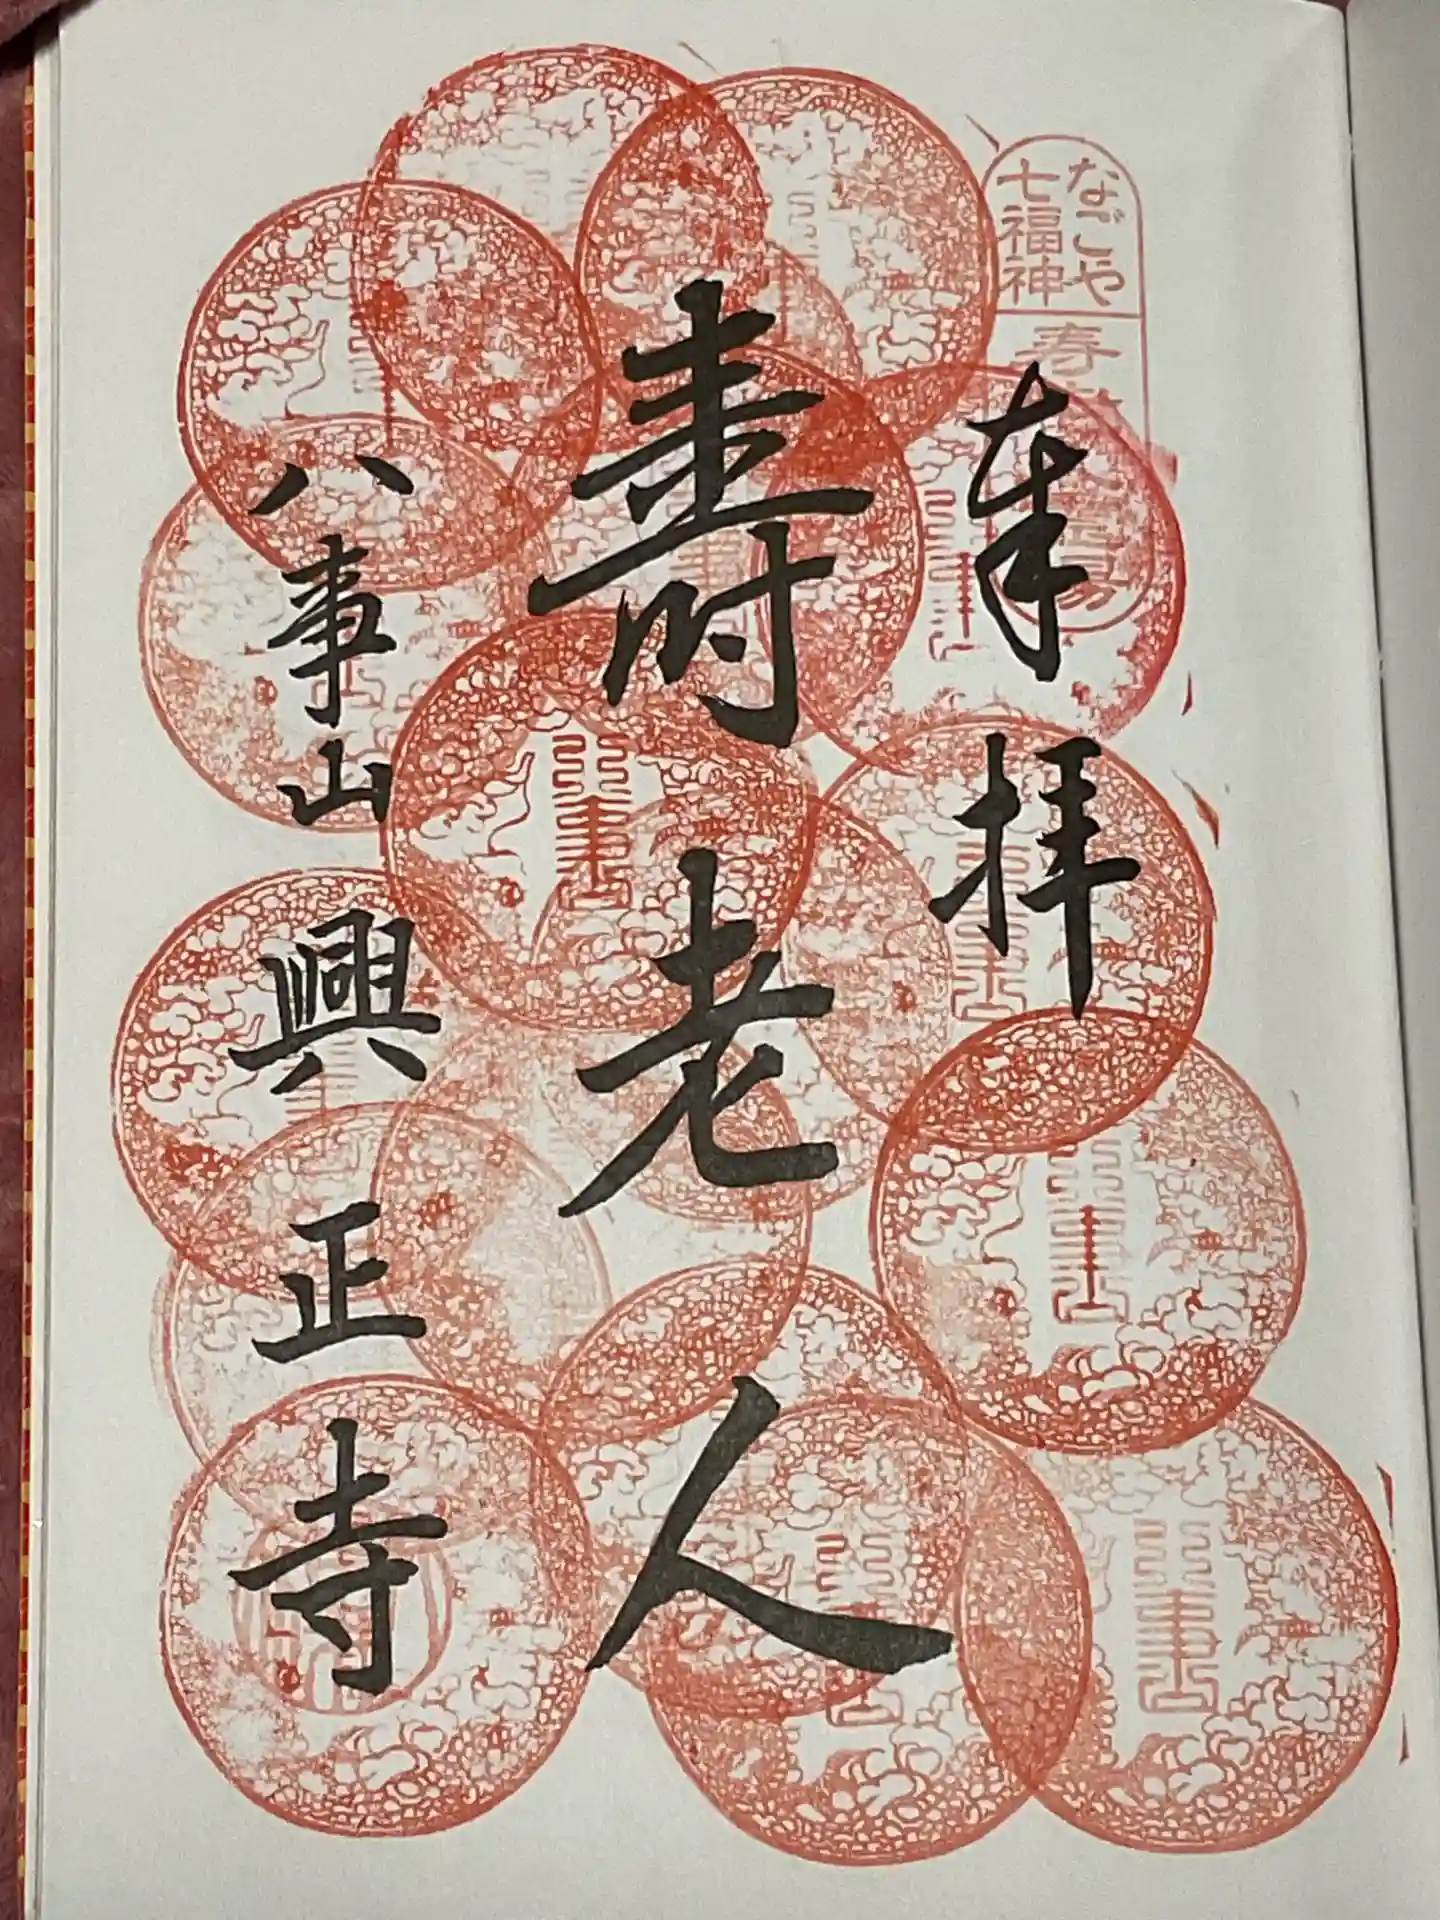 なごや
七福神
奉拝
寿老人
八事山興正寺